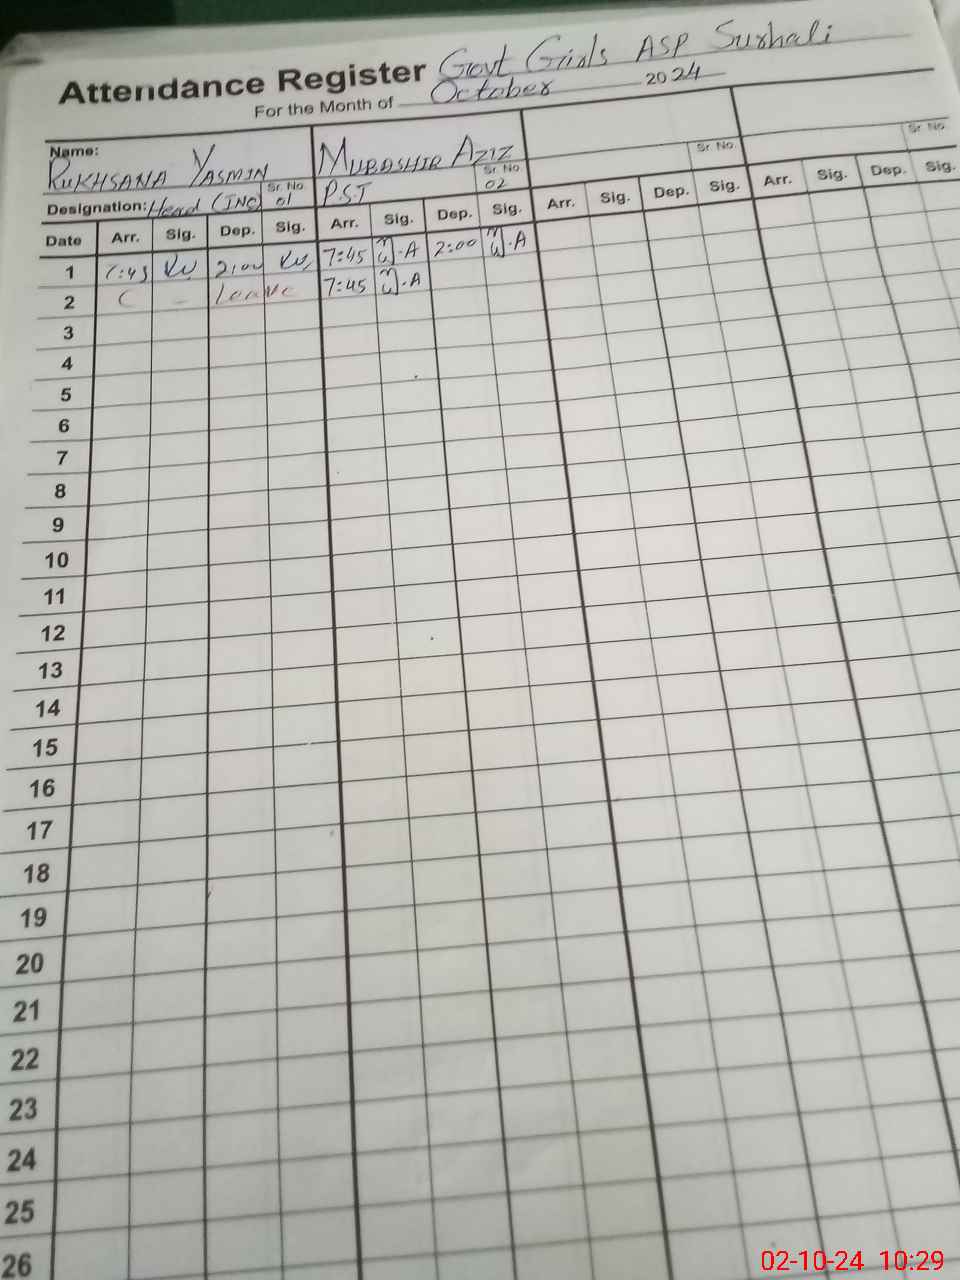 Attendance Register Govt Girls ASP Surhali
For the Month of October 2024
Name: RUKHSANA YASMIN MUBASHIR AZIZ
Designation: Head (INC) Sr. No. 01 P.S.T Sr. No. 02 Sr. No. Sr. No.
Date Arr. Sig. Dep. Sig. Arr. Sig. Dep. Sig. Arr. Sig. Dep. Sig. Arr. Sig. Dep. Sig.
1 7:45 2:00 7:45 M.A 2:00 M.A
2 C - Leave 7:45 M.A
3
4
5
6
7
8
9
10
11
12
13
14
15
16
17
18
19
20
21
22
23
24
25
26
02-10-24 10:29